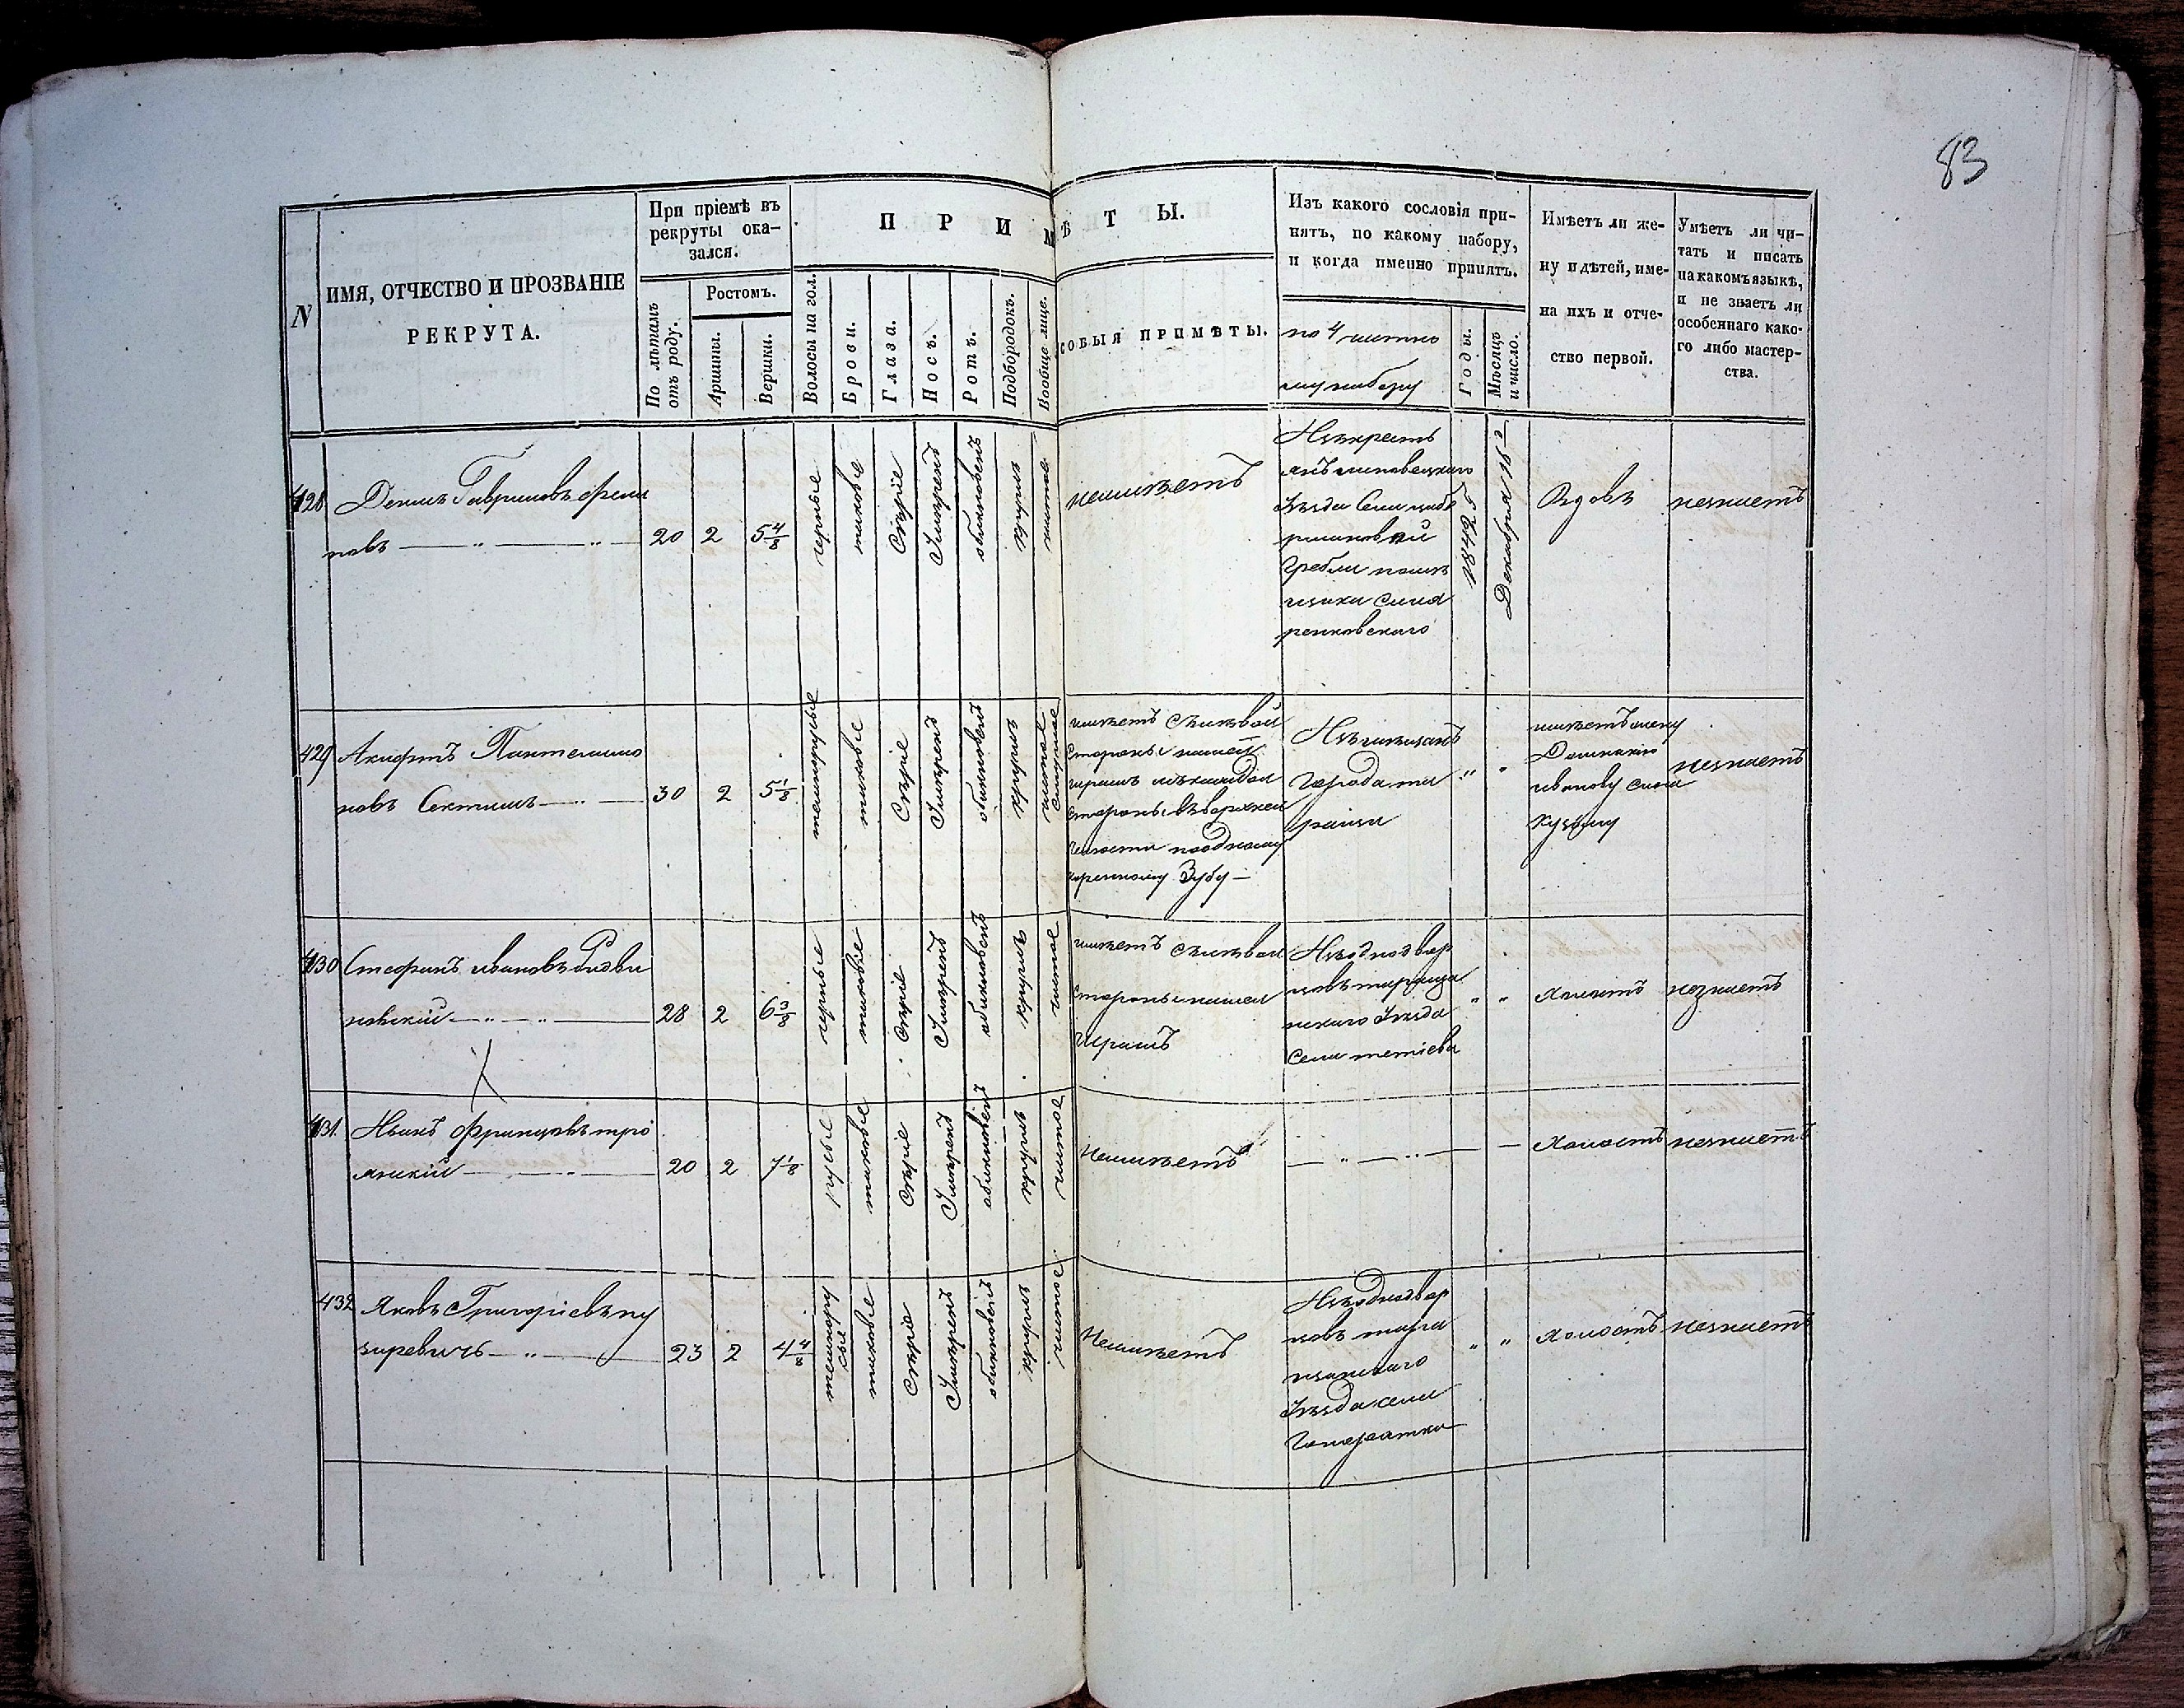 83
N
ИМЯ, ОТЧЕСТВО И ПРОЗВАНІЕ
РЕКРУТА.
При пріемѣ въ
рекруты ока-
зался.
По лѣтамъ
отъ роду.
Ростомъ.
Аршины.
Вершки.
ПРИМѢТЫ.
Волосы на гол.
Брови.
Глаза.
Носъ.
Ротъ.
Подбородокъ.
Вообще лице.
СОБЫЯ ПРИМѢТЫ.
Изъ какого сословія при-
нятъ, по какому набору,
и когда именно принятъ.
по 4 частно
му набору
Годы.
Мѣсяцъ
и число.
Имѣетъ ли же-
ну и дѣтей, име-
на ихъ и отче-
ство первой.
Умѣетъ ли чи-
тать и писать
на какомъ языкѣ,
и не знаетъ ли
особеннаго како-
го либо мастер-
ства.
428
Демянъ Гавриловъ
новъ
20
2
5 4/8
черные
таковые
Сѣрые
Умѣренъ
обыкновенъ
круглъ
чистое
неимѣетъ
Изъ крестъ
янъ липовецкаго
Уѣзда Села
Гребли помѣ
щика
Декабря 16
Вдовъ
незнаетъ
429
Акифтъ Пантелимо
новъ
30
2
5 1/8
темнорусые
таковые
Сѣрые
Умѣренъ
обыкновенъ
круглъ
чистое
имѣетъ съ лѣвой
стороны
шрамъ
стороны въ верхней
челюсти по одному
коренному Зубу
Изъ мѣщанъ
Города та
ращи
имѣетъ жену
иванову сына
Кузьму
незнаетъ
430
Стефанъ ивановъ
новскій
28
2
6 3/8
черные
таковые
Сѣрые
Умѣренъ
обыкновенъ
круглъ
чистое
имѣетъ съ лѣвой
стороны
шрамъ
Изъ однодвор
цовъ тараща
нскаго Уѣзда
Села тетіева
Холостъ
незнаетъ
431.
Иванъ Францовъ тро
янскій
20
2
7 1/8
русые
таковые
Сѣрые
Умѣренъ
обыкновенъ
круглъ
чистое
Неимѣетъ
Холостъ
незнаетъ
432
Яковъ Григоріевъ пу
зиревичъ
23
2
4 4/8
темнору
сые
таковые
Сѣрые
Умѣренъ
обыкновенъ
круглъ
чистое
Неимѣетъ
Изъ однодвор
цовъ тара
щанскаго
Уѣзда села
Холостъ
незнаетъ